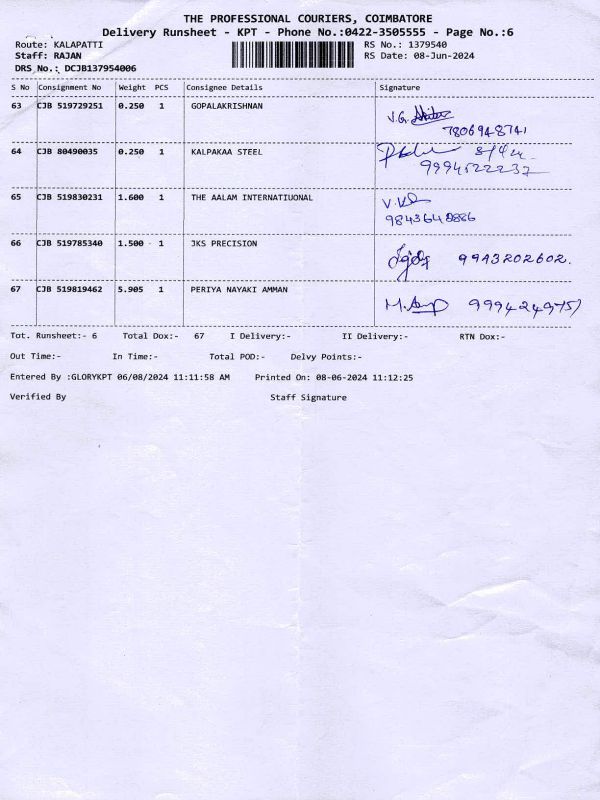 THE PROFESSIONAL COURIERS, COIMBATORE
Delivery Runsheet - KPT - Phone No.:0422-3505555 - Page No.:6
Route: KALAPATTI RS No.: 1379540
Staff: RAJAN RS Date: 08-Jun-2024
DRS No.: DCJB137954006
S No Consignment No Weight PCS Consignee Details Signature
63 CJB 519729251 0.250 1 GOPALAKRISHNAN
V.G.
7806948741
64 CJB 80490035 0.250 1 KALPAKAA STEEL
9994522237
65 CJB 519830231 1.600 1 THE AALAM INTERNATIUONAL
9843640886
66 CJB 519785340 1.500 1 JKS PRECISION
9943202602.
67 CJB 519819462 5.905 1 PERIYA NAYAKI AMMAN
9994249757
Tot. Runsheet:- 6 Total Dox:- 67 I Delivery:- II Delivery:- RTN Dox:-
Out Time:- In Time:- Total POD:- Delvy Points:-
Entered By :GLORYKPT 06/08/2024 11:11:58 AM Printed On: 08-06-2024 11:12:25
Verified By Staff Signature